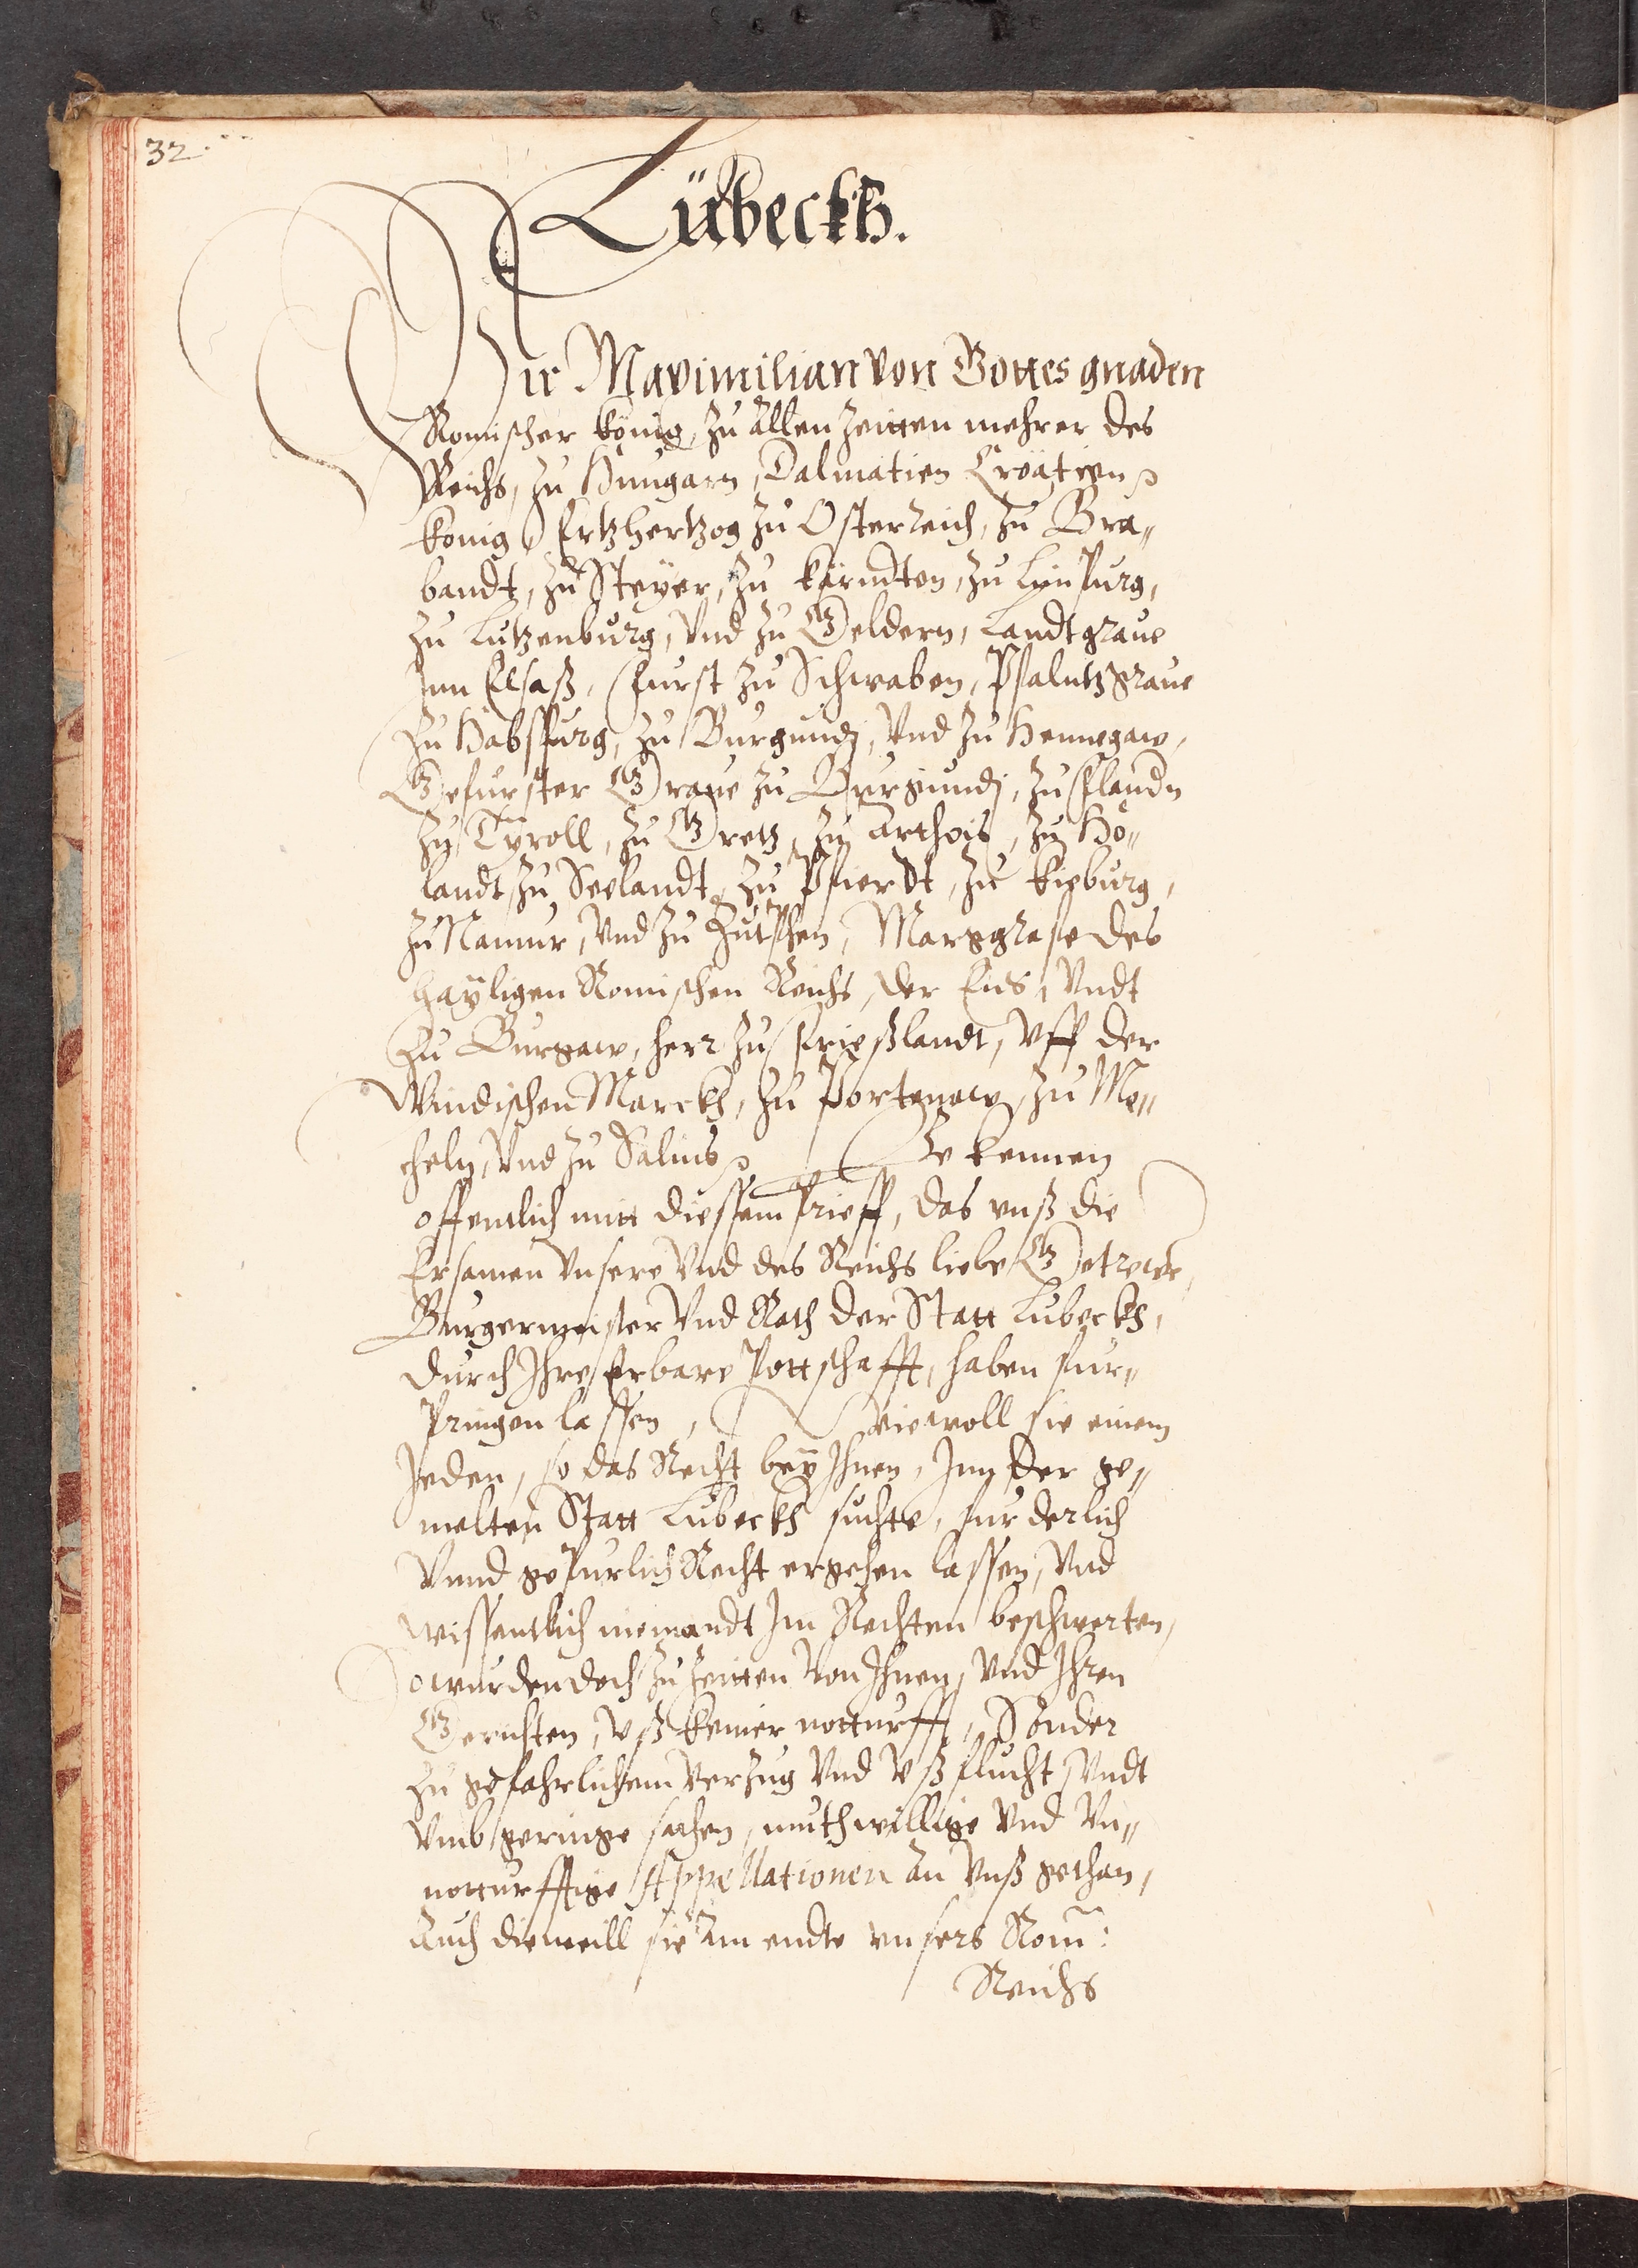 32.
Lübeckh.
Wir Maximilian von Gottes gnaden
Romischer König, zu allen zeitten mehrer des
Reichs, zu Hungarn, Dalmatien Croatien ꝛc
König Ertzhertzog zu Osterreich, zu Bra„
bandt, zu Steyer, zu Kärndten, zu Limpurg,
zu Lutzenburg, vnd zu Geldern, Landtgraue
Inn Elsaß, Fürst zu Schwaben, Pfaltzgraue
zu Habsspurg, zu Burgundj, Vnd zu Hennegaw,
Gefürster Graue zu Burgundj, zu Flandn
zu Tyroll, zu Gretz, zu Arthois, zu Ho„
landt zu Seelandt, zu Pfierdt, zu Kieburg,
zu Namur, Vnd zu Zutphen, Marggrafe des
Hayligen Romischen Reichs, der Ens, Vndt
zu Burgaw, Herr zu Frießlandt, Vff der
Windischen Marckh, zu Portenaw, zu Me„
cheln, Vnd zu Salins ꝛc Bekennen
offentlich mitt diessem brieff, das vnß die
Ersamen Vnsere Vnd des Reichs liebe Getrewe,
Burgermeister Vnd Rath der Statt Lubeckh,
durch Ihre Erbare Pottschafft, haben fur„
pringen lassen, Wiewoll sie einem
Jeden, so das Recht bey Ihnen, Inn der ge„
melten Statt Lubeckh suchte, furderlich
Vnnd gepurlich Recht ergehen lassen, Vnd
wissentlich niemandt Im Rechten beschwerten,
So wurden doch zu zeitten Von Ihnen, Vnd Ihren
Gerichten, Vß keiner notturfft, Sonder
zu gefahrlichem Verzug Vnd Vßflucht, Vndt
Vmb geringe sachen, muthwillige Vnd Vn„
notturfftige Appellationen an Vnß gethan,
Auch dieweill sie am endte vnsers Rom:
Reichs